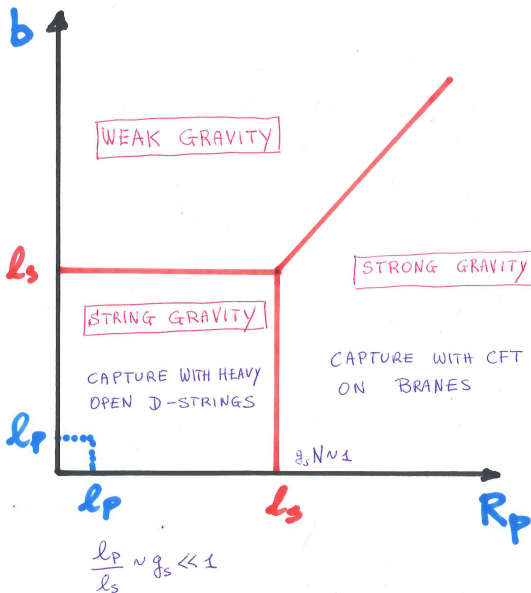 b
WEAK GRAVITY
ls
STRONG GRAVITY
STRING GRAVITY
CAPTURE WITH HEAVY
OPEN D-STRINGS
CAPTURE WITH CFT
ON BRANES
lp
gsN~1
lp
ls
Rp
lp/ls ~ gs << 1